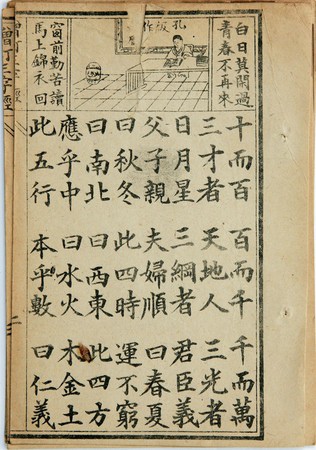 白日莫閒過
青春不再來
窗前勤苦讀
馬上錦衣回
十而百 百而千 千而萬
三才者 天地人 三光者
日月星 三綱者 君臣義
父子親 夫婦順 曰春夏
曰秋冬 此四時 運不窮
曰南北 曰西東 此四方
應乎中 曰水火 木金土
此五行 本乎數 曰仁義